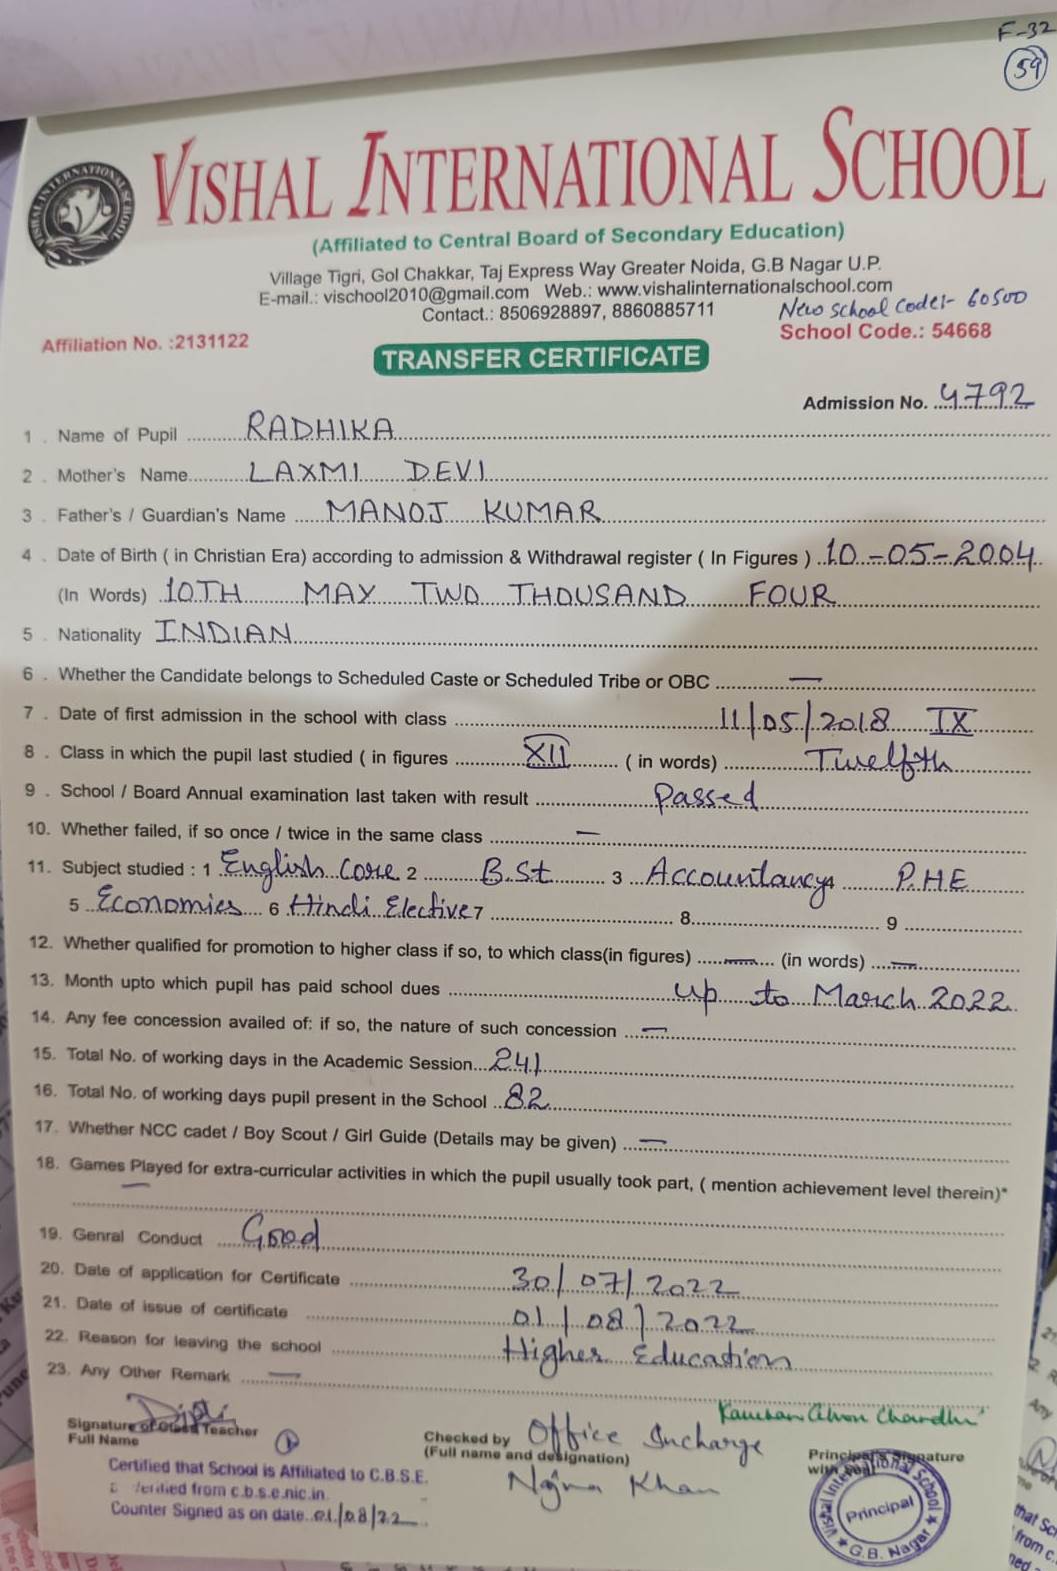 F-32
59
VISHAL INTERNATIONAL SCHOOL
(Affiliated to Central Board of Secondary Education)
Village Tigri, Gol Chakkar, Taj Express Way Greater Noida, G.B Nagar U.P.
E-mail.: vischool2010@gmail.com Web.: www.vishalinternationalschool.com
Contact.: 8506928897, 8860885711
New School Code:- 60500
Affiliation No. :2131122
School Code.: 54668
TRANSFER CERTIFICATE
Admission No. 4792
1 . Name of Pupil RADHIKA
2 . Mother's Name LAXMI DEVI
3 . Father's / Guardian's Name MANOJ KUMAR
4 . Date of Birth ( in Christian Era) according to admission & Withdrawal register ( In Figures ) 10-05-2004
(In Words) 10TH MAY TWO THOUSAND FOUR
5 . Nationality INDIAN
6 . Whether the Candidate belongs to Scheduled Caste or Scheduled Tribe or OBC —
7 . Date of first admission in the school with class 11/05/2018 IX
8 . Class in which the pupil last studied ( in figures XII ( in words) Twelfth
9 . School / Board Annual examination last taken with result Passed
10. Whether failed, if so once / twice in the same class —
11. Subject studied : 1 English Core 2 B.St 3 Accountancy 4 P.HE
5 Economics 6 Hindi Elective 7 8 9
12. Whether qualified for promotion to higher class if so, to which class(in figures) — (in words) —
13. Month upto which pupil has paid school dues up to March 2022
14. Any fee concession availed of: if so, the nature of such concession —
15. Total No. of working days in the Academic Session 241
16. Total No. of working days pupil present in the School 82
17. Whether NCC cadet / Boy Scout / Girl Guide (Details may be given) —
18. Games Played for extra-curricular activities in which the pupil usually took part, ( mention achievement level therein)*
—
19. Genral Conduct Good
20. Date of application for Certificate 30/07/2022
21. Date of issue of certificate 01/08/2022
22. Reason for leaving the school Higher Education
23. Any Other Remark —
Signature of Class Teacher
Full Name
Checked by Office Incharge
(Full name and designation)
Nagma Khan
Principal's Signature
with Seal
Vishal International School
Principal
G.B. Nagar
Certified that School is Affiliated to C.B.S.E.
verified from c.b.s.e.nic.in.
Counter Signed as on date 01/08/22